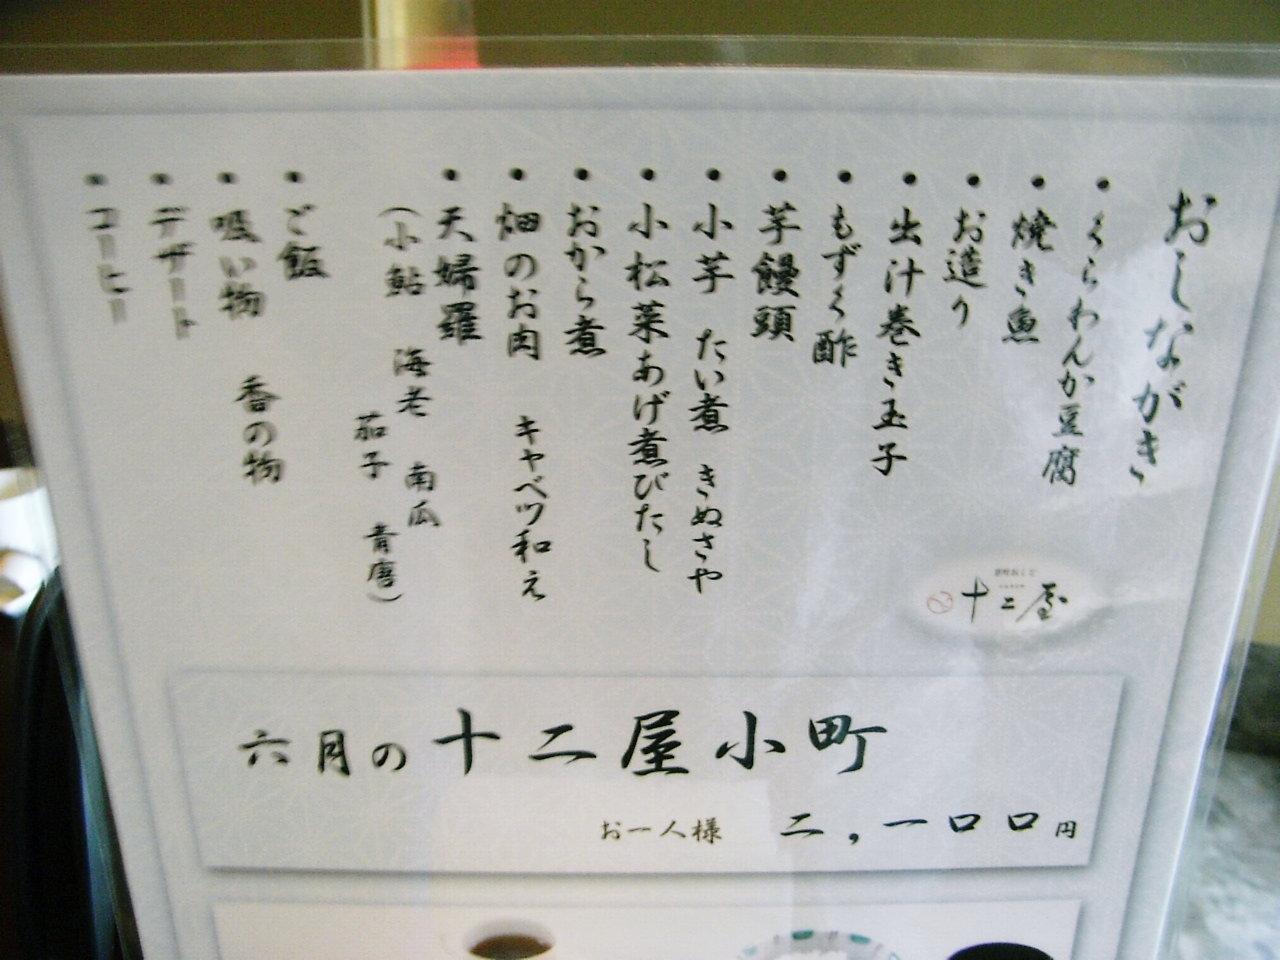 おしながき
・くらわんか豆腐
・焼き魚
・お造り
・出汁巻き玉子
・もずく酢
・芋饅頭
・小芋 たい煮 きぬさや
・小松菜あげ煮びたし
・おから煮
・畑のお肉 キャベツ和え
・天婦羅
(小鮎 海老 南瓜
茄子 青唐)
・ご飯
・吸い物 香の物
・デザート
・コーヒー
十二屋
六月の十二屋小町
お一人様 二,一〇〇円